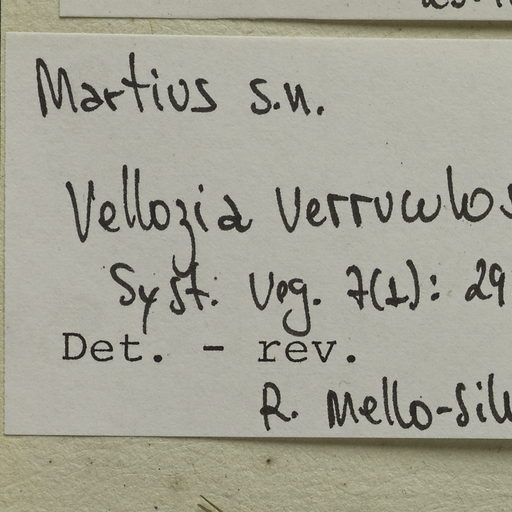 Martius s.n.
Vellozia verruculos
Syst. Veg. 7(1): 29
Det. - rev.
R. Mello-Silv